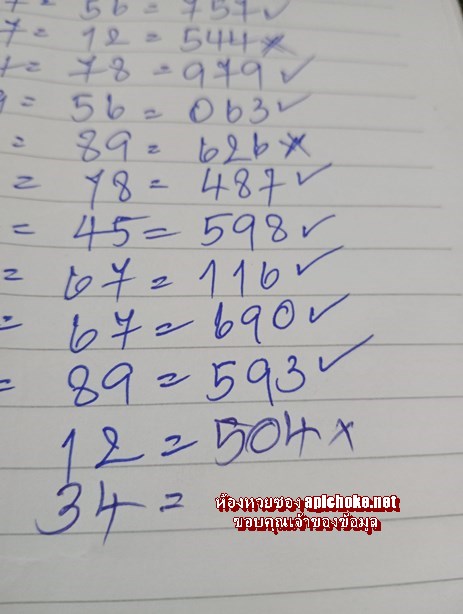 = 56 = 757✓
7 = 12 = 544×
= 78 = 979✓
= 56 = 063✓
= 89 = 626×
= 78 = 487✓
= 45 = 598✓
= 67 = 116✓
= 67 = 690✓
= 89 = 593✓
12 = 504×
34 =
ห้องหวยซอง apichoke.net
ขอบคุณเจ้าของข้อมูล